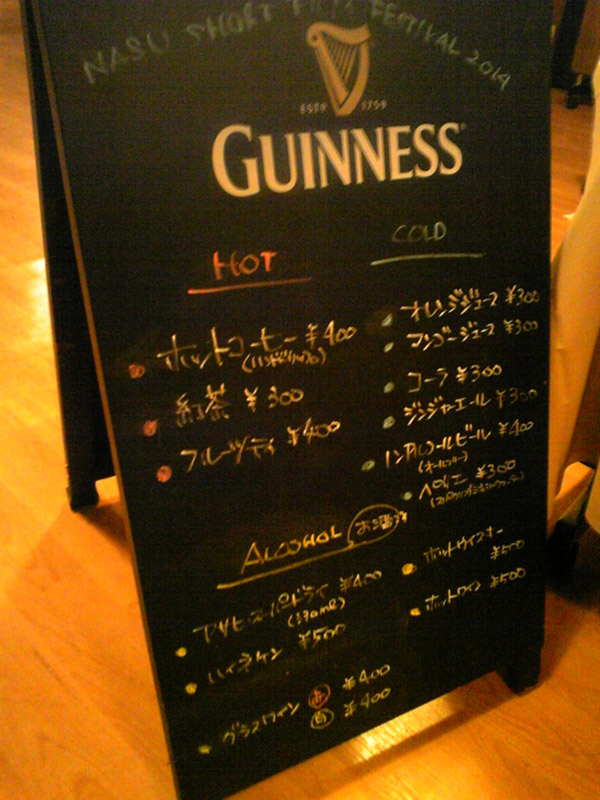 NASU SHORT FILM FESTIVAL 2014
ESTD 1759
GUINNESS
HOT
ホットコーヒー ¥400
(ハンドドリップ)
紅茶 ¥300
フルーツティ ¥400
COLD
オレンジジュース ¥300
マンゴージュース ¥300
コーラ ¥300
ジンジャーエール ¥300
ノンアルコールビール ¥400
(オールフリー)
ペリエ ¥300
ALCOHOL お酒
アサヒスーパードライ ¥400
ハイネケン ¥500
グラスワイン 赤 ¥400
白 ¥400
ホットウイスキー
¥500
ホットワイン ¥500